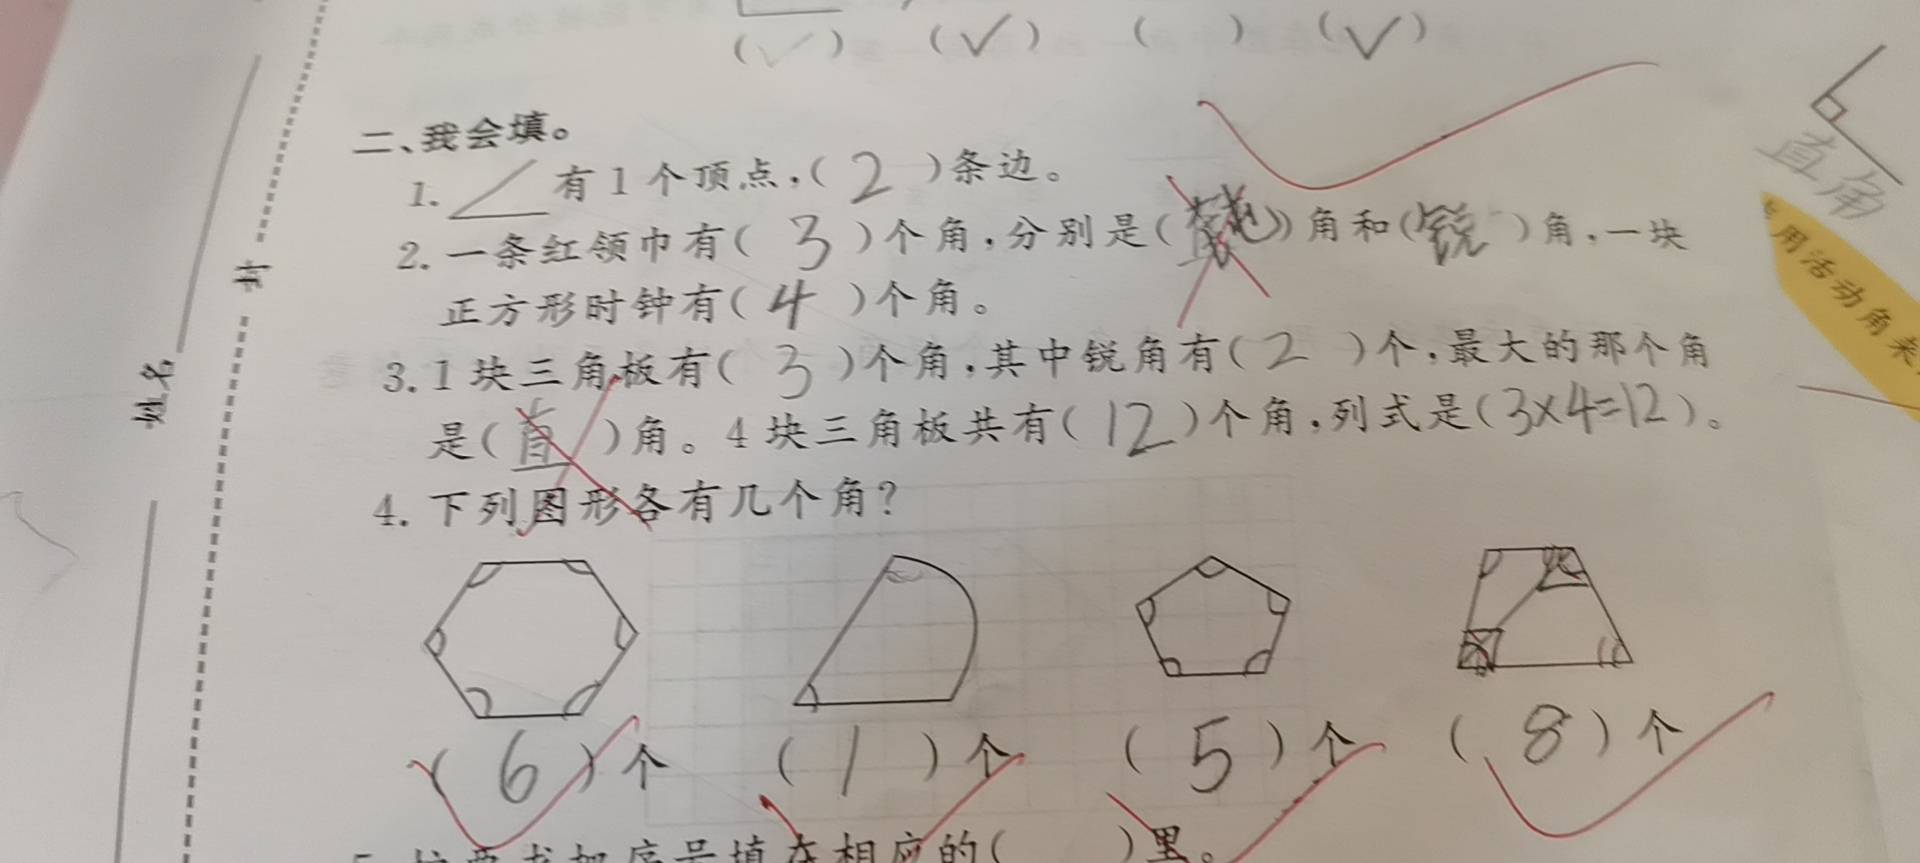 (✓) (✓) ( ) (✓)
二、我会填。
1. 有1个顶点,(2)条边。
直角
2. 一条红领巾有(3)个角,分别是( )角和(锐)角,一块
正方形时钟有(4)个角。
用活动角来
3. 1块三角板有(3)个角,其中锐角有(2)个,最大的那个角
是(直)角。4块三角板共有(12)个角,列式是(3×4=12)。
4. 下列图形各有几个角?
(6)个 (1)个 (5)个 (8)个
序号填在相应的( )里。
封
姓名